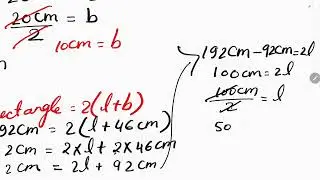 20cm = b
2
10cm = b
ectangle = 2(l+b)
92cm = 2(l + 46cm)
2cm = 2xl + 2x46cm
2cm = 2l + 92cm
192cm-92cm=2l
100cm=2l
100cm = l
2
50